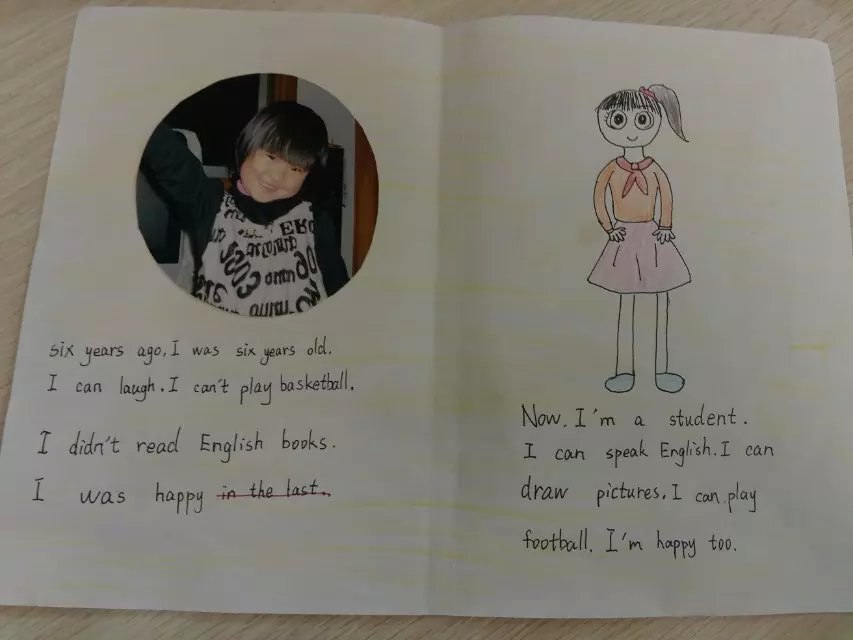 six years ago, I was six years old.
I can laugh. I can't play basketball.
I didn't read English books.
I was happy in the last.
Now, I'm a student.
I can speak English. I can
draw pictures. I can play
football. I'm happy too.